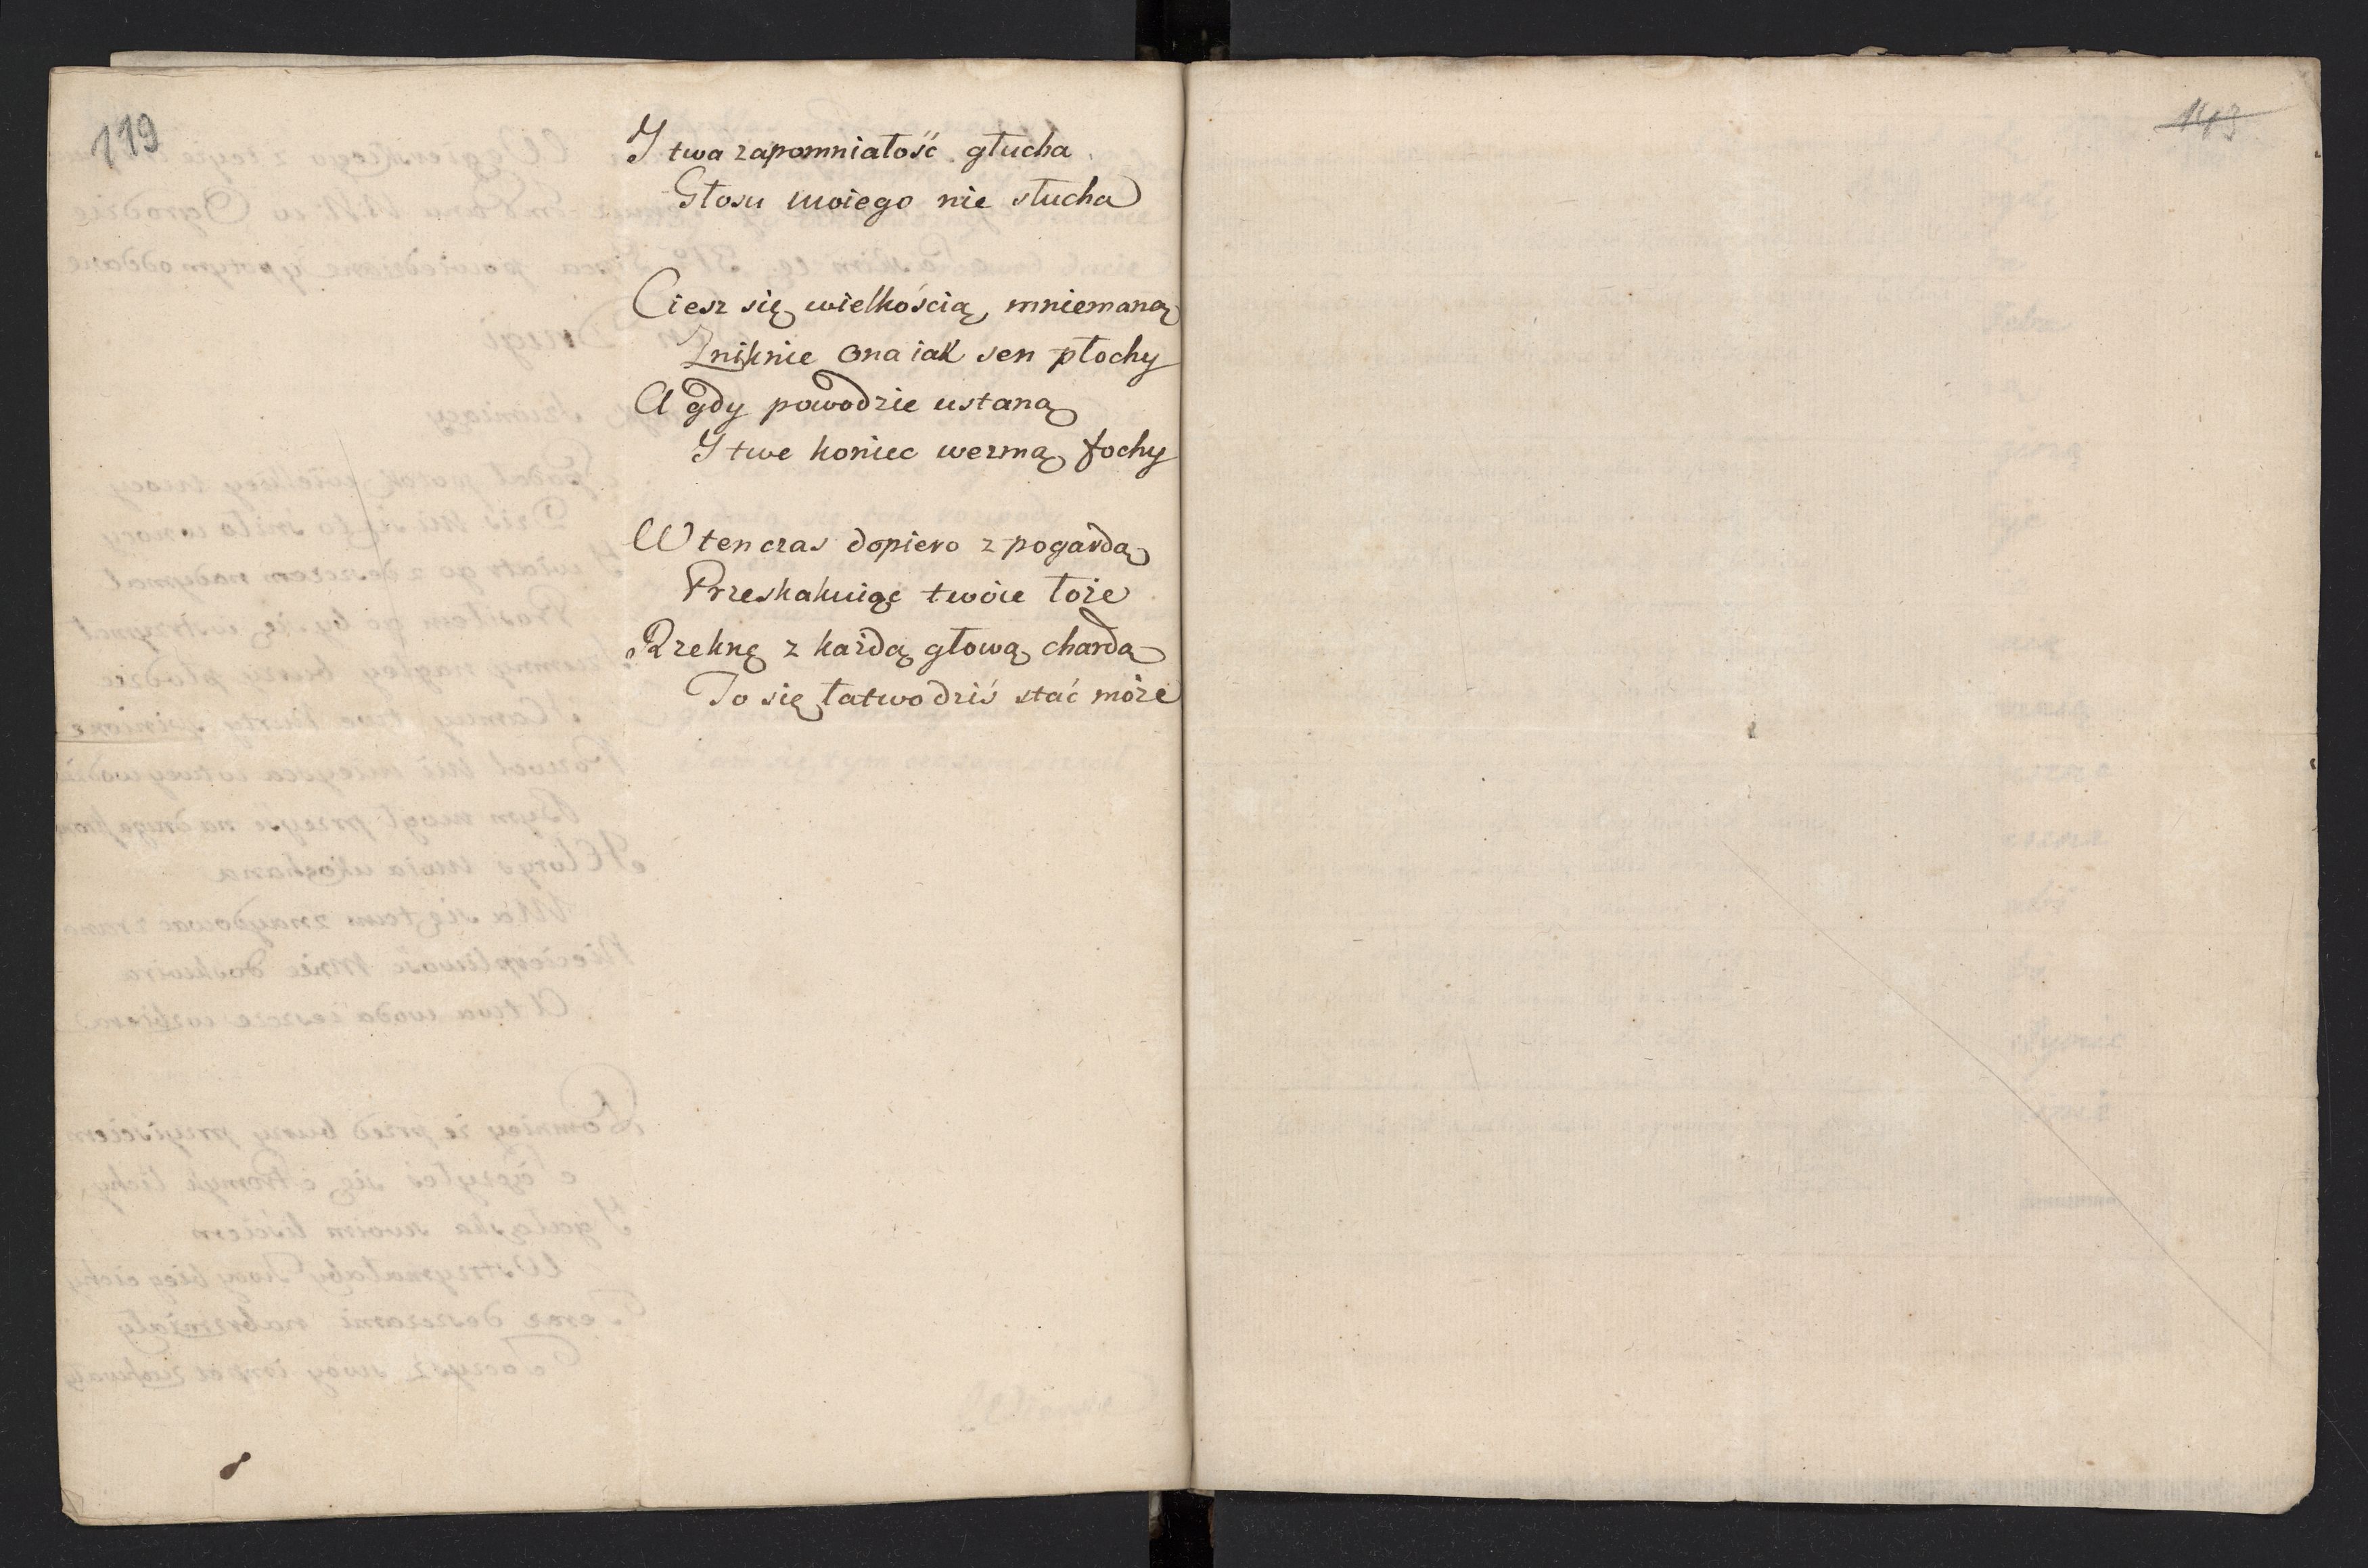 119
I twa zapomniałość głucha
Głosu moiego nie słucha
Ciesz się wielkością mniemaną
Zniknie ona iak sen płochy
A gdy powodzie ustaną
I twe koniec wezmą fochy
W ten czas dopiero z pogardą
Przeskakuiąc twóie łoże
Rzeknę z każdą głową chardą
To się łatwo dziś stać może
143